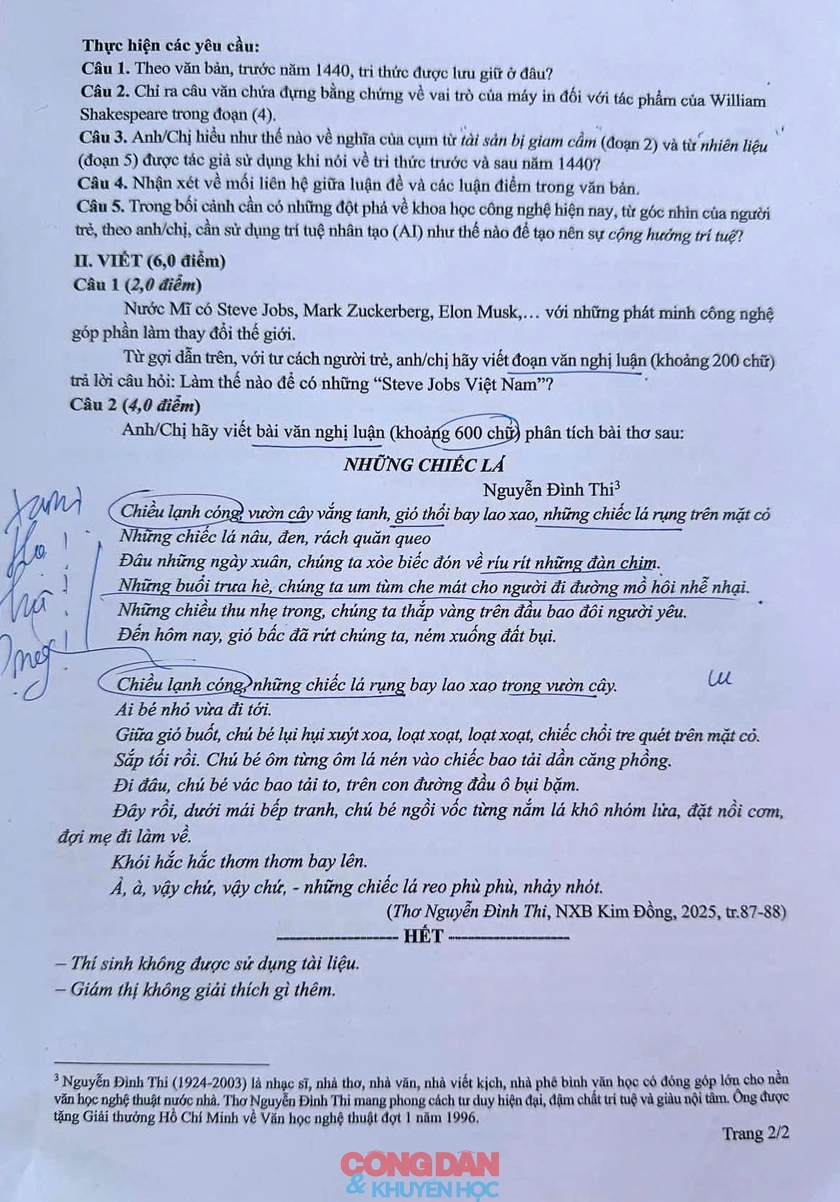 Thực hiện các yêu cầu:
Câu 1. Theo văn bản, trước năm 1440, tri thức được lưu giữ ở đâu?
Câu 2. Chỉ ra câu văn chứa đựng bằng chứng về vai trò của máy in đối với tác phẩm của William
Shakespeare trong đoạn (4).
Câu 3. Anh/Chị hiểu như thế nào về nghĩa của cụm từ tài sản bị giam cầm (đoạn 2) và từ nhiên liệu
(đoạn 5) được tác giả sử dụng khi nói về tri thức trước và sau năm 1440?
Câu 4. Nhận xét về mối liên hệ giữa luận đề và các luận điểm trong văn bản.
Câu 5. Trong bối cảnh cần có những đột phá về khoa học công nghệ hiện nay, từ góc nhìn của người
trẻ, theo anh/chị, cần sử dụng trí tuệ nhân tạo (AI) như thế nào để tạo nên sự cộng hưởng trí tuệ?
II. VIẾT (6,0 điểm)
Câu 1 (2,0 điểm)
Nước Mĩ có Steve Jobs, Mark Zuckerberg, Elon Musk,... với những phát minh công nghệ
góp phần làm thay đổi thế giới.
Từ gợi dẫn trên, với tư cách người trẻ, anh/chị hãy viết đoạn văn nghị luận (khoảng 200 chữ)
trả lời câu hỏi: Làm thế nào để có những “Steve Jobs Việt Nam”?
Câu 2 (4,0 điểm)
Anh/Chị hãy viết bài văn nghị luận (khoảng 600 chữ) phân tích bài thơ sau:
NHỮNG CHIẾC LÁ
Nguyễn Đình Thi³
Chiều lạnh cóng, vườn cây vắng tanh, gió thổi bay lao xao, những chiếc lá rụng trên mặt cỏ
Những chiếc lá nâu, đen, rách quăn queo
Đâu những ngày xuân, chúng ta xòe biếc đón về ríu rít những đàn chim.
Những buổi trưa hè, chúng ta um tùm che mát cho người đi đường mồ hôi nhễ nhại.
Những chiều thu nhẹ trong, chúng ta thắp vàng trên đầu bao đôi người yêu.
Đến hôm nay, gió bấc đã rứt chúng ta, ném xuống đất bụi.
Chiều lạnh cóng, những chiếc lá rụng bay lao xao trong vườn cây.
Ai bé nhỏ vừa đi tới.
Giữa gió buốt, chú bé lụi hụi xuýt xoa, loạt xoạt, loạt xoạt, chiếc chổi tre quét trên mặt cỏ.
Sắp tối rồi. Chú bé ôm từng ôm lá nén vào chiếc bao tải dần căng phồng.
Đi đâu, chú bé vác bao tải to, trên con đường đầu ô bụi bặm.
Đây rồi, dưới mái bếp tranh, chú bé ngồi vốc từng nắm lá khô nhóm lửa, đặt nồi cơm,
đợi mẹ đi làm về.
Khói hắc hắc thơm thơm bay lên.
À, à, vậy chứ, vậy chứ, - những chiếc lá reo phù phù, nhảy nhót.
(Thơ Nguyễn Đình Thi, NXB Kim Đồng, 2025, tr.87-88)
-------------------- HẾT --------------------
– Thí sinh không được sử dụng tài liệu.
– Giám thị không giải thích gì thêm.
³ Nguyễn Đình Thi (1924-2003) là nhạc sĩ, nhà thơ, nhà văn, nhà viết kịch, nhà phê bình văn học có đóng góp lớn cho nền
văn học nghệ thuật nước nhà. Thơ Nguyễn Đình Thi mang phong cách tư duy hiện đại, đậm chất trí tuệ và giàu nội tâm. Ông được
tặng Giải thưởng Hồ Chí Minh về Văn học nghệ thuật đợt 1 năm 1996.
Trang 2/2
CÔNG DÂN
& KHUYẾN HỌC